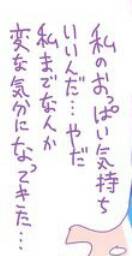 私のおっぱい気持ち
いいんだ…やだ
私までなんか
変な気分になってきた…